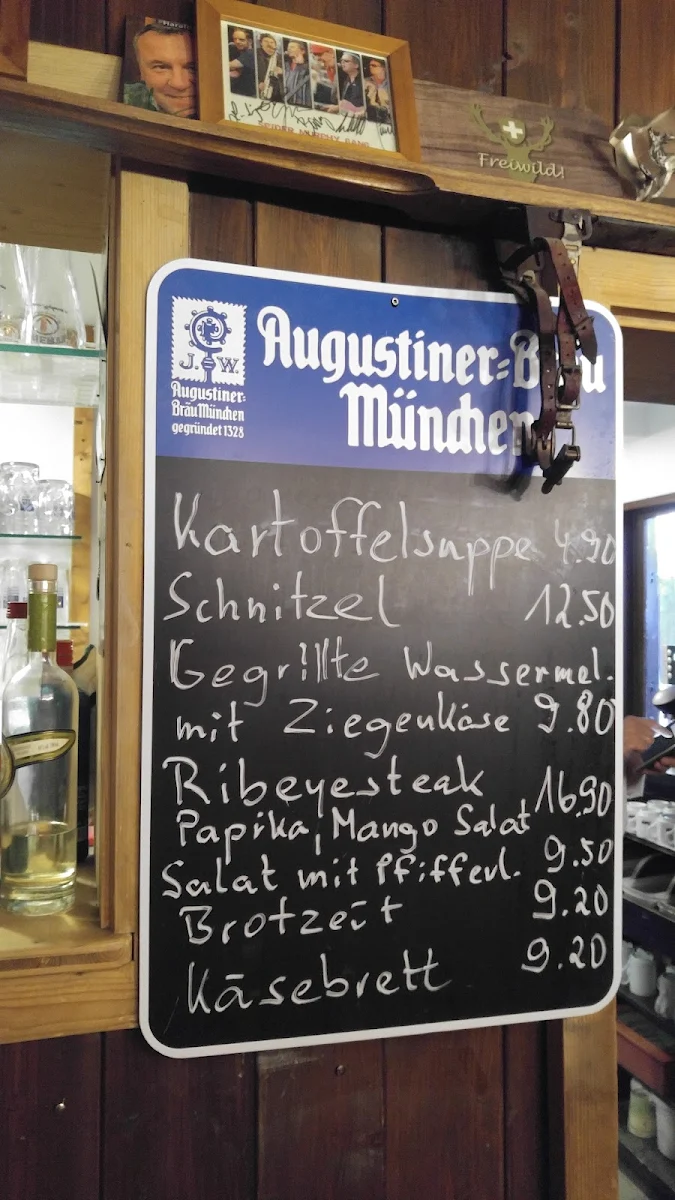 Freiwild!
J. W.
Augustiner-
Bräu München
gegründet 1328
Augustiner-Bräu
München
Kartoffelsuppe 4.90
Schnitzel 12.50
Gegrillte Wassermel.
mit Ziegenkäse 9.80
Ribeyesteak 16.90
Paprika, Mango Salat
Salat mit Pfifferl. 9.50
Brotzeit 9.20
Käsebrett 9.20